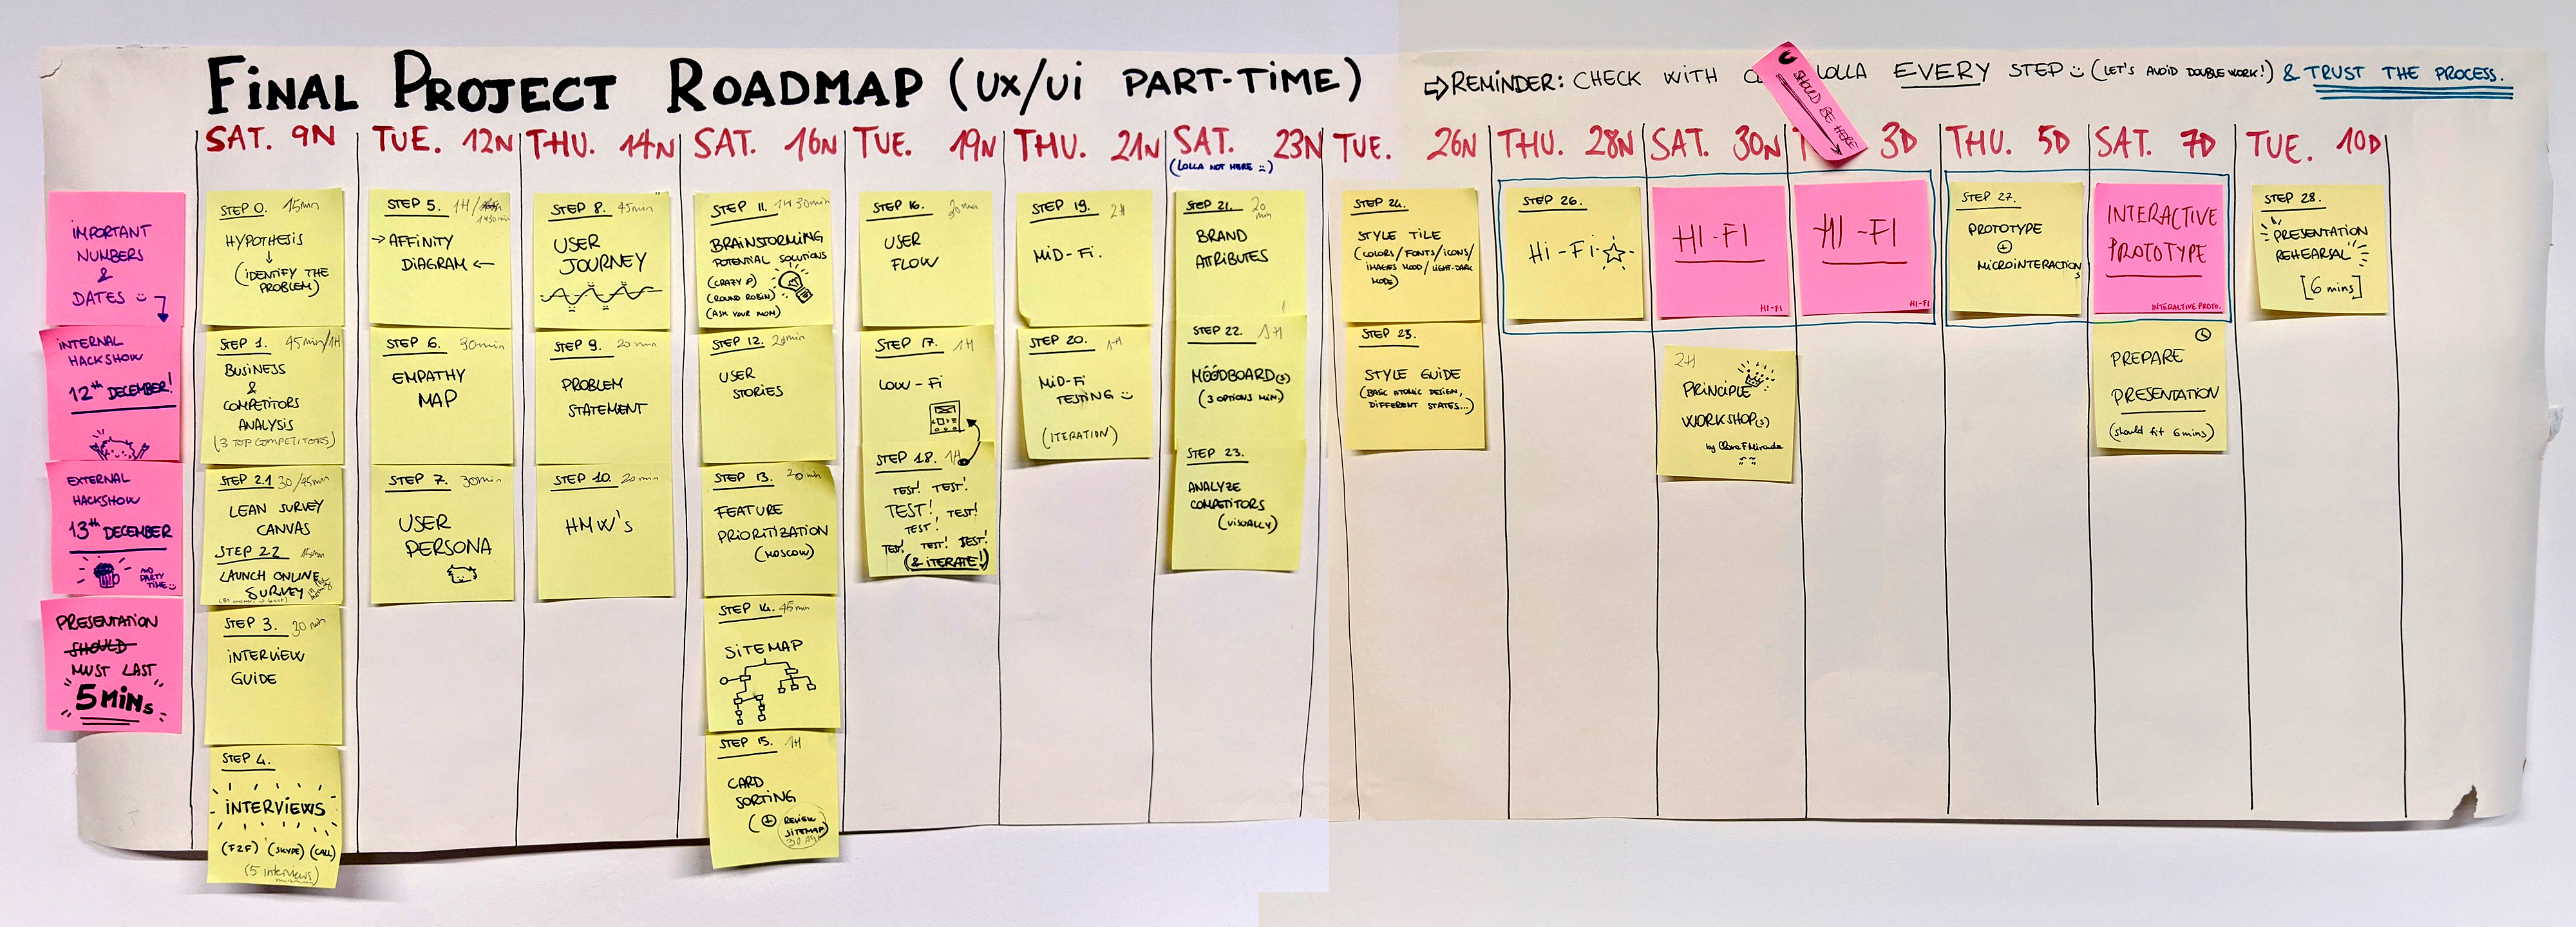 FINAL PROJECT ROADMAP (UX/UI PART-TIME)
⇒REMINDER: CHECK WITH LOLLA EVERY STEP (LET'S AVOID DOUBLE WORK!) & TRUST THE PROCESS.
SHOULD BE HERE
IMPORTANT
NUMBERS
&
DATES
INTERNAL
HACKSHOW
12th DECEMBER!
EXTERNAL
HACKSHOW
13th DECEMBER
AND
PARTY
TIME
PRESENTATION
SHOULD
MUST LAST
5 MINs
SAT. 9N
STEP 0. 15min
HYPOTHESIS
↓
(IDENTIFY THE
PROBLEM)
STEP 1. 45min/1H
BUSINESS
&
COMPETITORS
ANALYSIS
(3 TOP COMPETITORS)
STEP 2.1 30/45min
LEAN SURVEY
CANVAS
STEP 2.2
LAUNCH ONLINE
SURVEY
STEP 3. 30 min
INTERVIEW
GUIDE
STEP 4.
INTERVIEWS
(F2F) (SKYPE) (CALL)
(5 interviews)
TUE. 12N
STEP 5. 1H/
1H30min
→AFFINITY
DIAGRAM←
STEP 6. 30min
EMPATHY
MAP
STEP 7. 30min
USER
PERSONA
THU. 14N
STEP 8. 45min
USER
JOURNEY
STEP 9. 20min
PROBLEM
STATEMENT
STEP 10. 20min
HMW's
SAT. 16N
STEP 11. 1H30min
BRAINSTORMING
POTENTIAL SOLUTIONS
(CRAZY 8)
(ROUND ROBIN)
(ASK YOUR MOM)
STEP 12. 20min
USER
STORIES
STEP 13. 20min
FEATURE
PRIORITIZATION
(MOSCOW)
STEP 14. 45min
SITEMAP
STEP 15. 1H
CARD
SORTING
(+ REVIEW
SITEMAP)
30 MIN
TUE. 19N
STEP 16. 30min
USER
FLOW
STEP 17. 1H
LOW-FI
STEP 18. 1H
TEST! TEST!
TEST! TEST!
TEST!
TEST! TEST! TEST!
(& ITERATE!)
THU. 21N
STEP 19. 2H
MID-FI.
STEP 20. 1H
MID-FI
TESTING
(ITERATION)
SAT. 23N
(LOLLA NOT HERE :)
STEP 21. 20
min
BRAND
ATRIBUTES
STEP 22. 1H
MOODBOARD(s)
(3 OPTIONS MIN)
STEP 23.
ANALYZE
COMPETITORS
(VISUALLY)
TUE. 26N
STEP 24.
STYLE TILE
(COLORS/FONTS/ICONS/
IMAGES MOOD/LIGHT-DARK
MODE)
STEP 23.
STYLE GUIDE
(BASIC ATOMIC DESIGN,
DIFFERENT STATES...)
THU. 28N
STEP 26.
Hi-Fi
SAT. 30N
HI-FI
HI-FI
2H
PRINCIPLE
WORKSHOP(s)
by
T 3D
HI-FI
HI-FI
THU. 5D
STEP 27.
PROTOTYPE
+
MICROINTERACTIONS
SAT. 7D
INTERACTIVE
PROTOTYPE
INTERACTIVE PROTO.
PREPARE
PRESENTATION
(should fit 6mins)
TUE. 10D
STEP 28.
PRESENTATION
REHEARSAL
[6 mins]